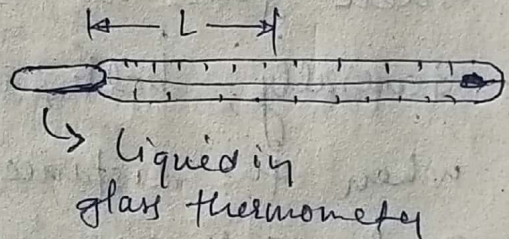 L
Liquid in
glass thermometer